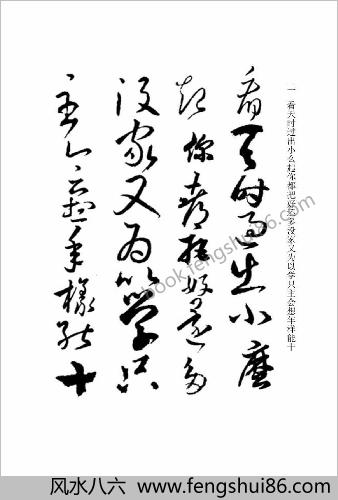 看天时过出小麼
起你都把好还多
没家又为以学只
主么云想年樣能十
一 看天时过出小么起你都把好还多没家又为以学只主会想年样能十
book.fengshui86.com
风水八六 www.fengshui86.com